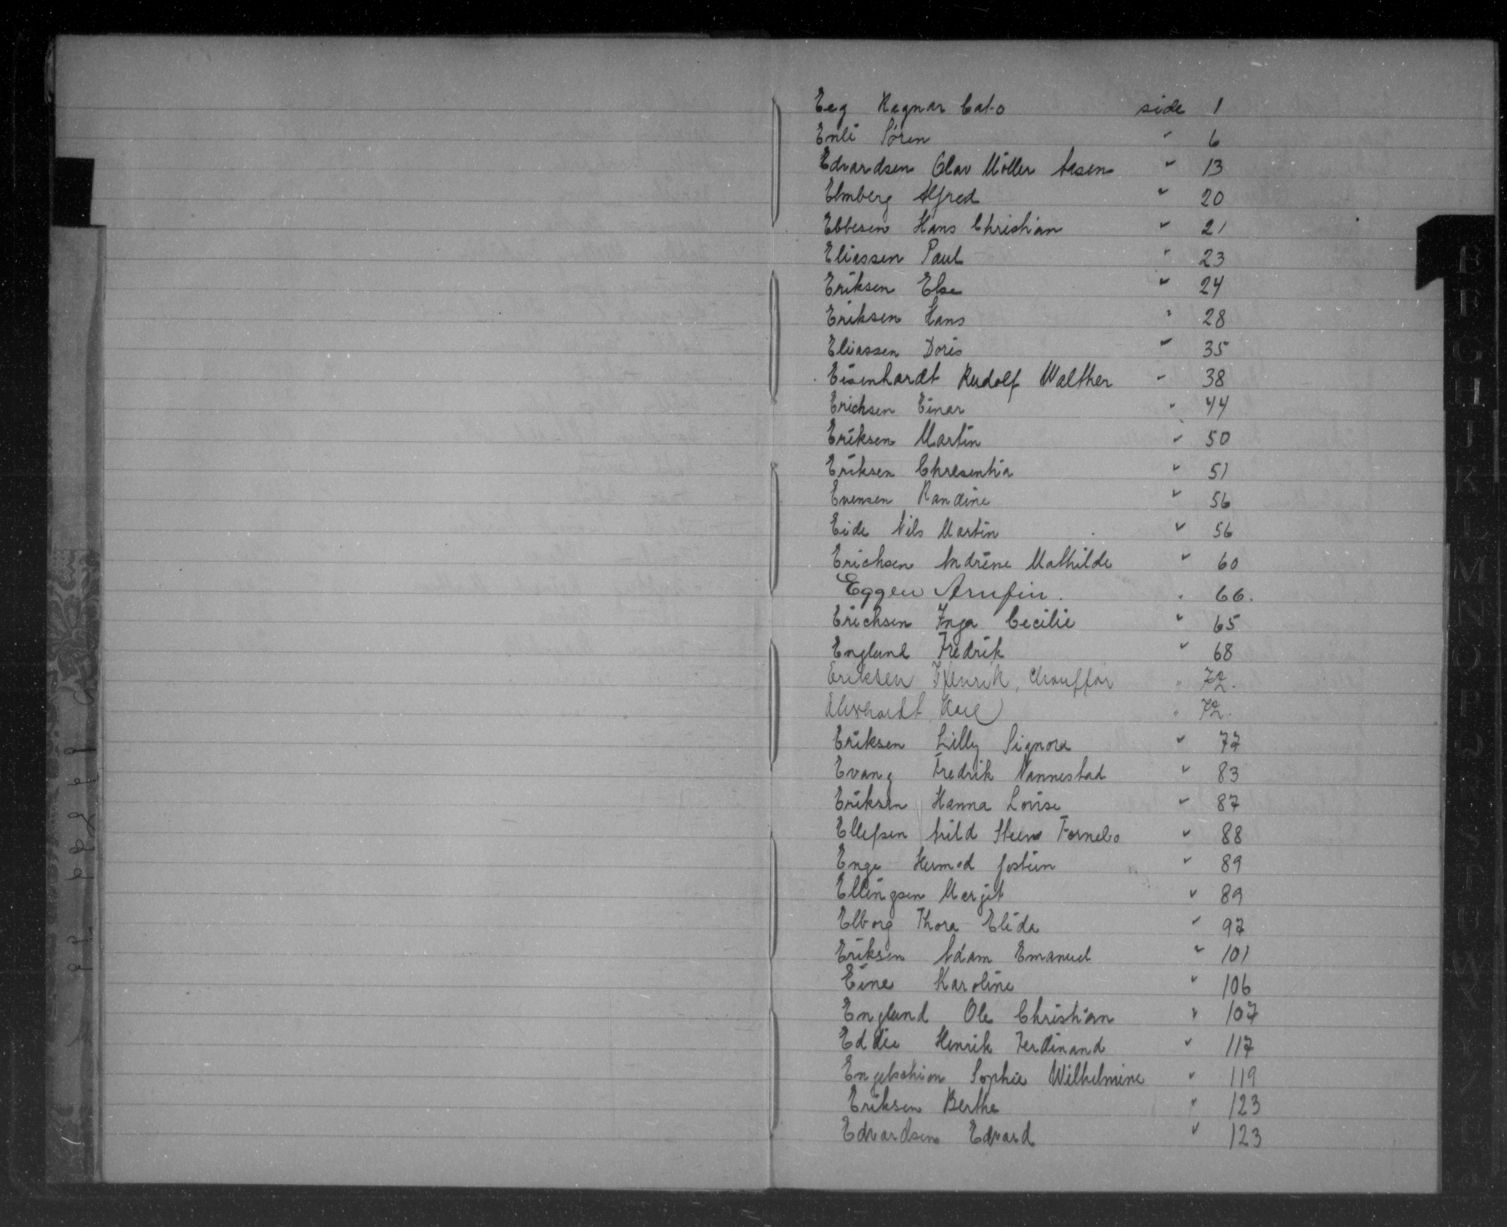 Eeg Ragnar Cato side 1
Enli Sören " 6
Edvardsen Olav Möller Aasen " 13
Elmberg Alfred " 20
Ebbesen Hans Christian " 21
Eliassen Paul " 23
Eriksen Else " 24
Eriksen Hans " 28
Eliassen Doris " 35
Eisenhardt Rudolf Walther " 38
Erichsen Einar " 44
Eriksen Martin " 50
Eriksen Chresentia " 51
Evensen Randine " 56
Eide Nils Martin " 56
Erichsen Andrine Mathilde " 60
Eggen Arnfin. " 66.
Erichsen Inga Cecilie " 65
England Fredrik " 68
Eriksen Henrik, Chauffør " 72.
Karl " 72.
Eriksen Lilly Signora " 77
Evang Fredrik Nannestad " 83
Eriksen Hanna Lovise " 87
Ellefsen Arild Steen Fornebo " 88
Enge Hermod Jostein " 89
Ellingsen Margit " 89
Elborg Thora Elida " 97
Eriksen Adam Emanuel " 101
Eine Karoline " 106
England Ole Christian " 107
Eddie Henrik Ferdinand " 117
Engelschiøn Sophie Wilhelmine " 119
Eriksen Berthe " 123
Edvardsen Edvard " 123